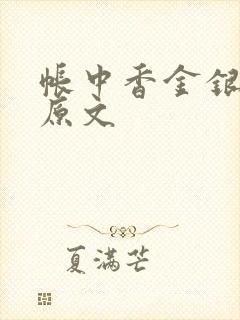 帐中香金银
原文
夏满芒